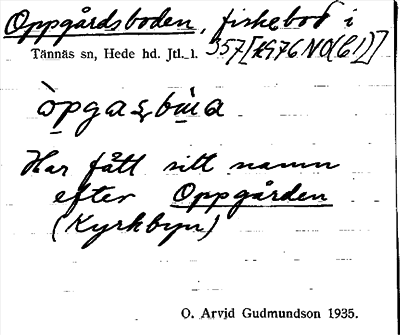 Oppgårdsboden, fiskebod i
Tännäs sn, Hede hd. Jtl. l. 357[1976 NO(61)]
Har fått sitt namn
efter Oppgården
(Kyrkbyn)
O. Arvid Gudmundson 1935.